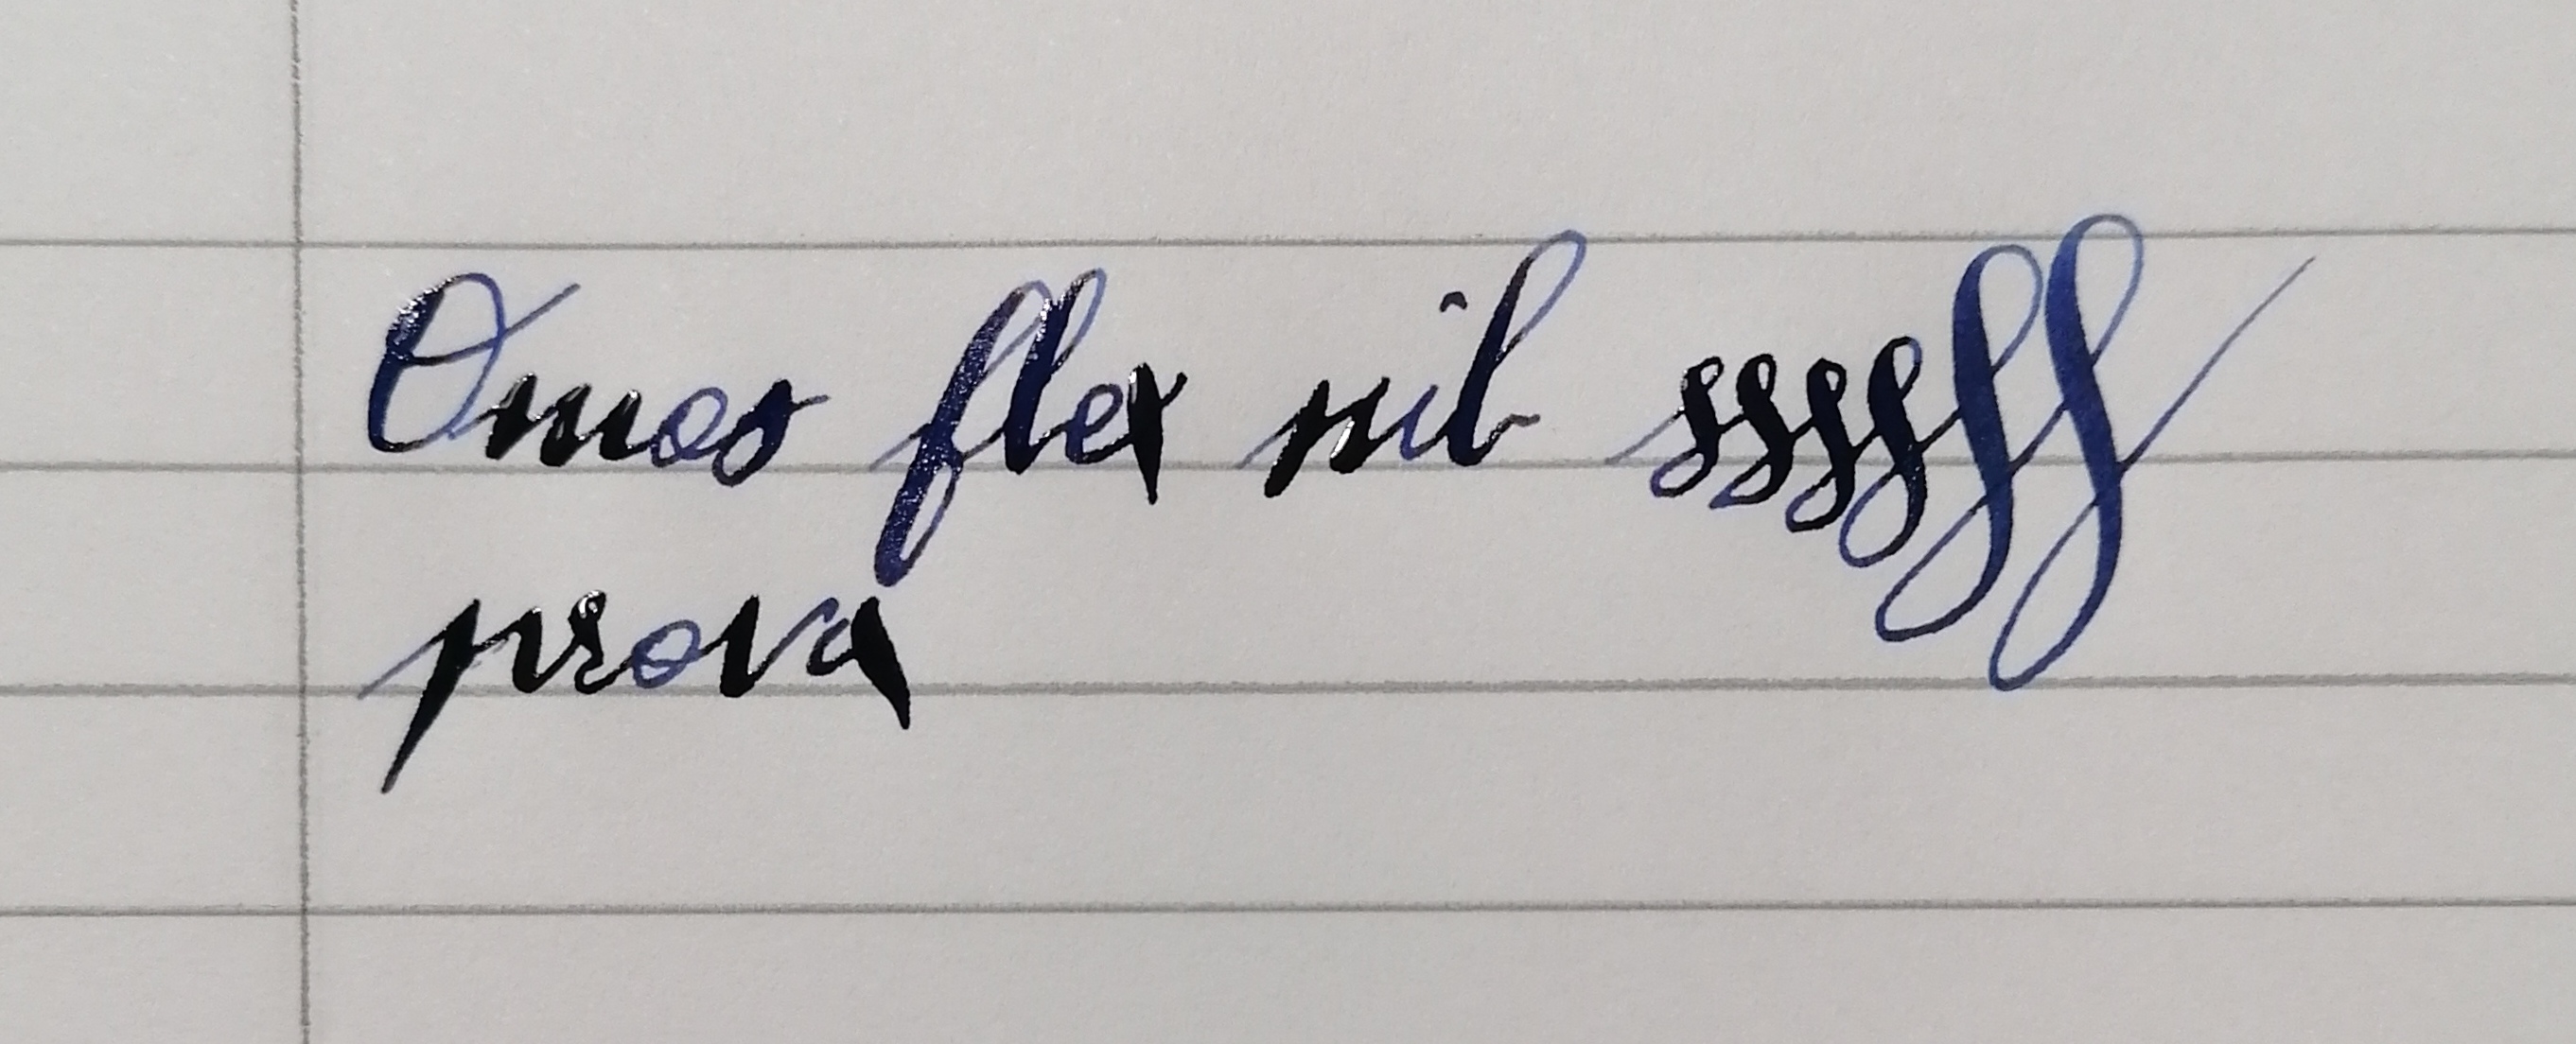 Omas flex nib ssssss
prova